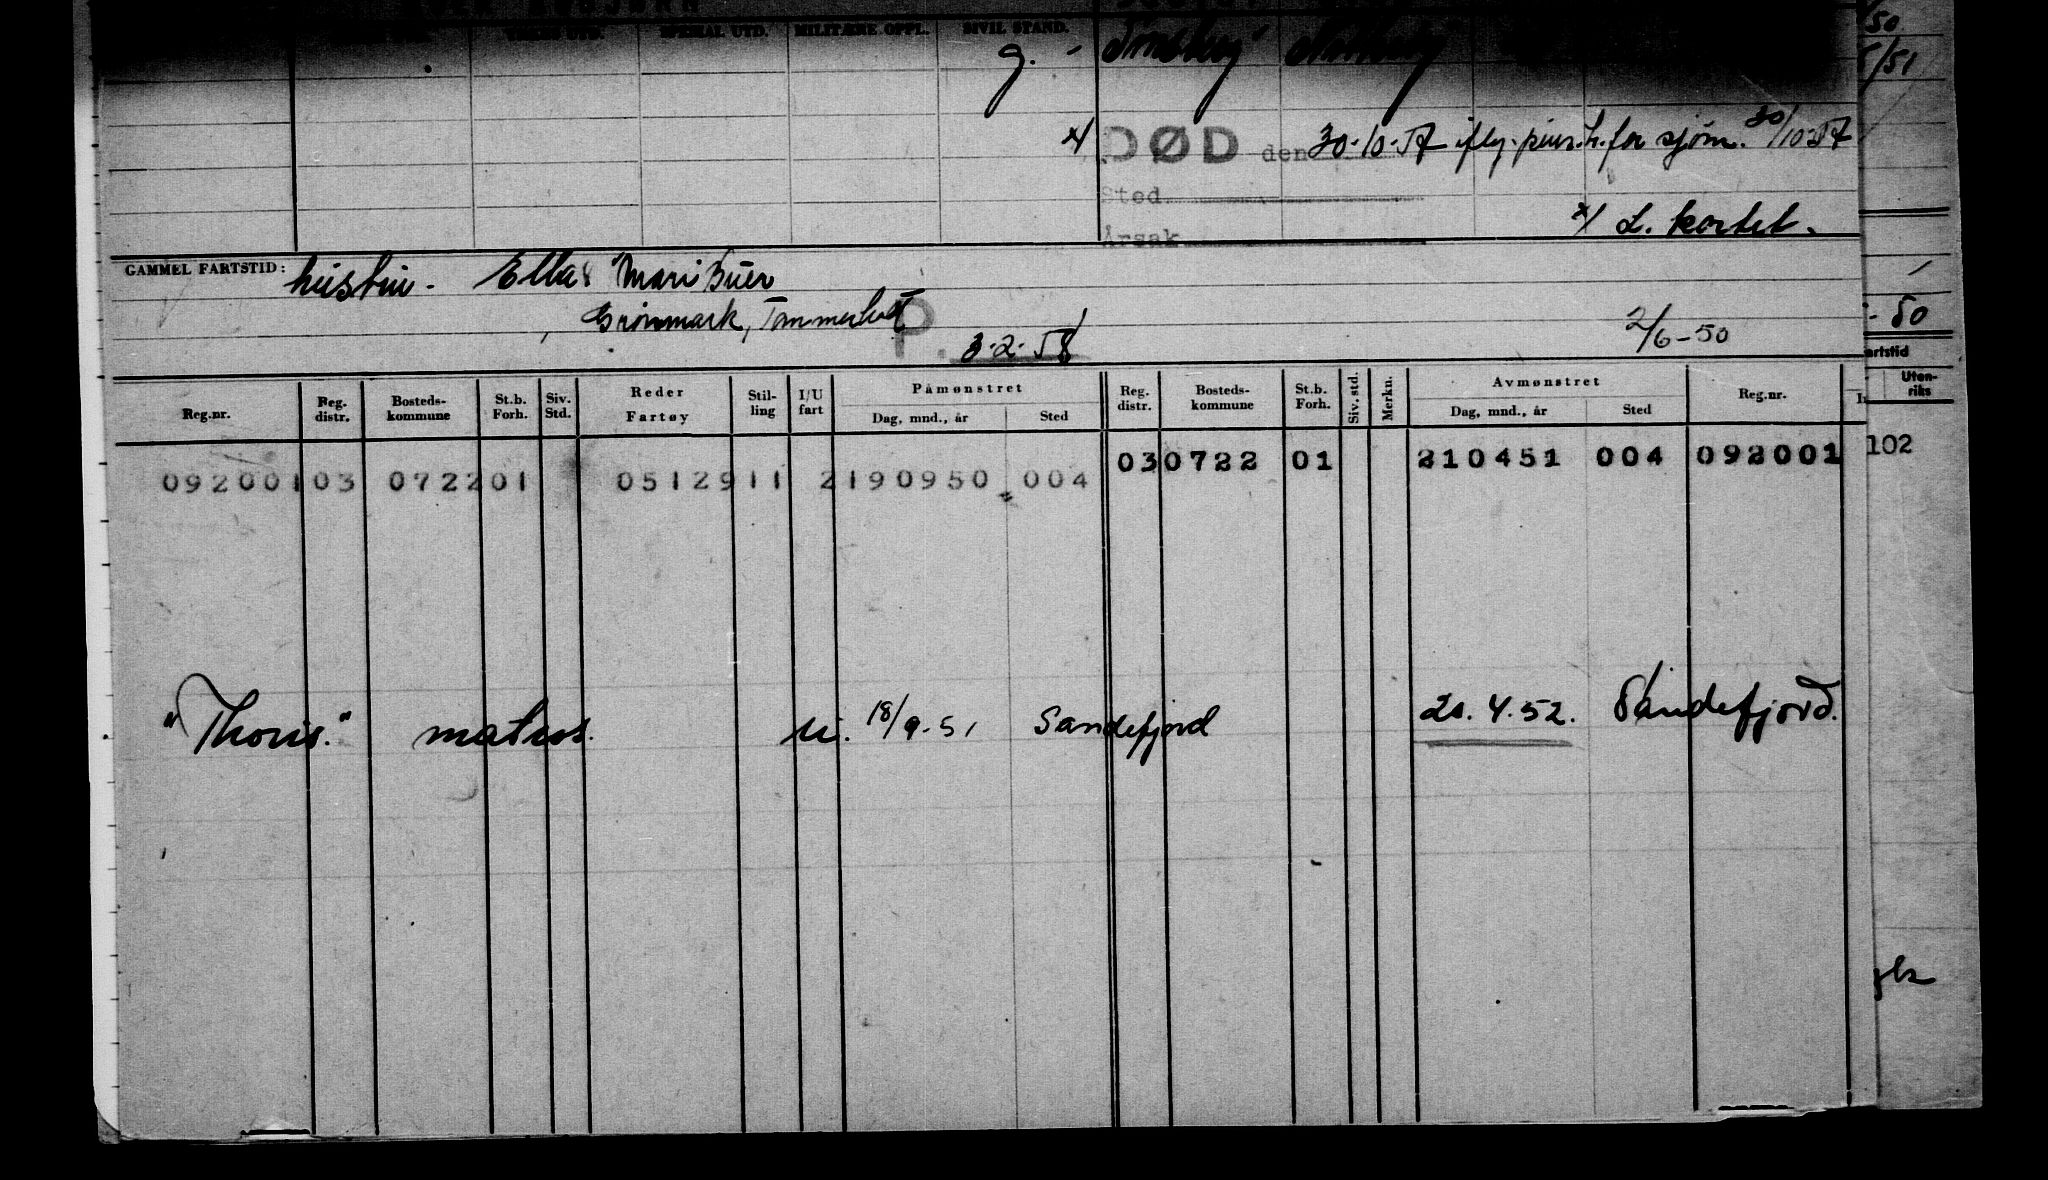 SPESIAL UTD. MILITÆRE OPPL. SIVIL STAND.
g. -
50
5/51
x/ DØD den 30-10-57 iflg. pens.tr. for sjøm. 30/10-57
Sted
Årsak
x/ L. kortet.
GAMMEL FARTSTID: hustru - Ella Mari Buer
Grønmark, Tømmerholt
P. 3-2-58
2/6-50
- 50
artstid
Uten-
riks
Reg.nr. Reg. distr. Bosteds- kommune St.b. Forh. Siv. Std. Reder Fartøy Stil- ling I/U fart Påmønstret Dag, mnd., år Sted Reg. distr. Bosteds- kommune St.b. Forh. Siv. std. Merkn. Avmønstret Dag, mnd., år Sted Reg.nr.
092001 03 0722 01 05129 11 2 190950 004 03 0722 01 210451 004 092001 102
"Thoris." matros. u. 18/9-51 Sandefjord 21.4.52. Sandefjord.